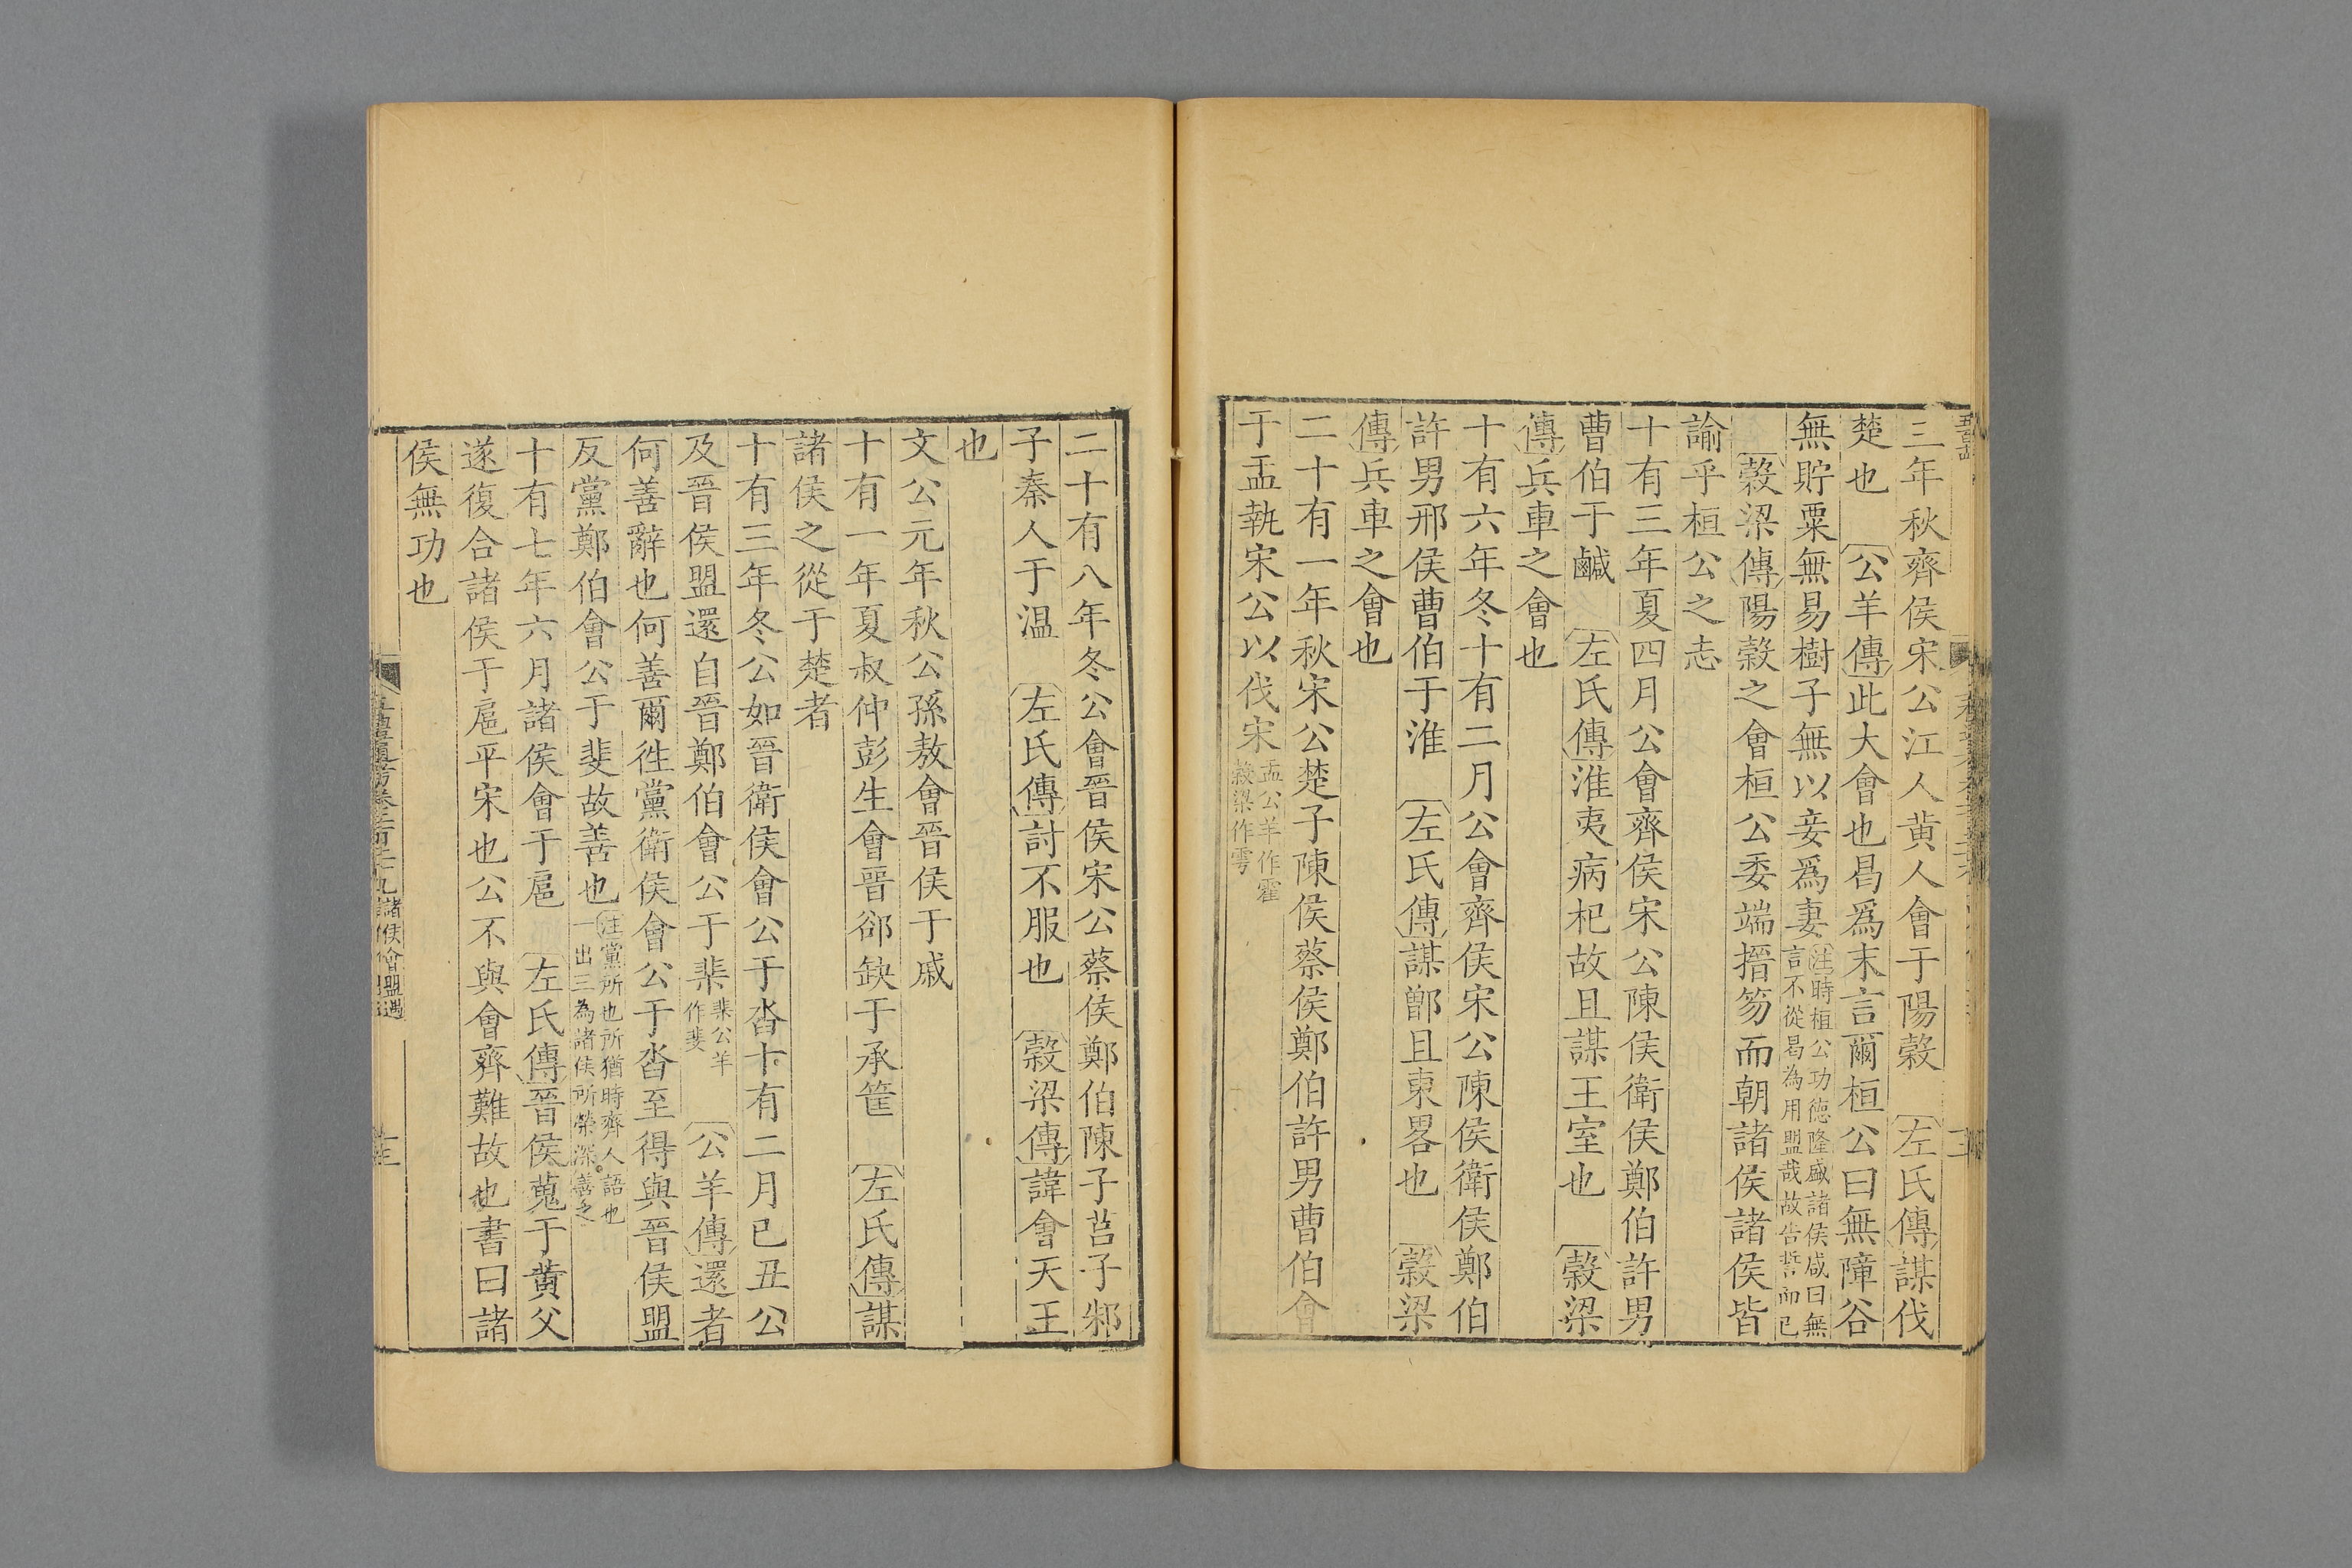 三年秋齊侯宋公江人黃人會于陽榖　左氏傳謀伐
楚也　公羊傳此大會也曷爲末言爾桓公曰無障谷
無貯粟無易樹子無以妾爲妻注時桓公功德隆盛諸侯咸曰無
言不從曷為用盟哉故告誓而已
榖梁傳陽榖之會桓公委端搢笏而朝諸侯諸侯皆
諭乎桓公之志
十有三年夏四月公會齊侯宋公陳侯衛侯鄭伯許男
曹伯于鹹　左氏傳淮夷病杞故且謀王室也　榖梁
傳兵車之會也
十有六年冬十有二月公會齊侯宋公陳侯衛侯鄭伯
許男邢侯曹伯于淮　左氏傳謀鄫且東畧也　榖梁
傳兵車之會也
二十有一年秋宋公楚子陳侯蔡侯鄭伯許男曹伯會
于盂執宋公以伐宋盂公羊作霍
榖梁作雩
二十有八年冬公會晉侯宋公蔡侯鄭伯陳子莒子邾
子秦人于温　左氏傳討不服也　榖梁傳諱會天王
也
文公元年秋公孫敖會晉侯于戚
十有一年夏叔仲彭生會晉郤缺于承筐　左氏傳謀
諸侯之從于楚者
十有三年冬公如晉衛侯會公于沓十有二月已丑公
及晉侯盟還自晉鄭伯會公于棐棐公羊
作斐
　公羊傳還者
何善辭也何善爾徃黨衛侯會公于沓至得與晉侯盟
反黨鄭伯會公于斐故善也注黨所也所猶時齊人語也
一出三為諸侯所榮深善之
十有七年六月諸侯會于扈　左氏傳晉侯蒐于黃父
遂復合諸侯于扈平宋也公不與會齊難故也書曰諸
侯無功也
諸侯會盟遇